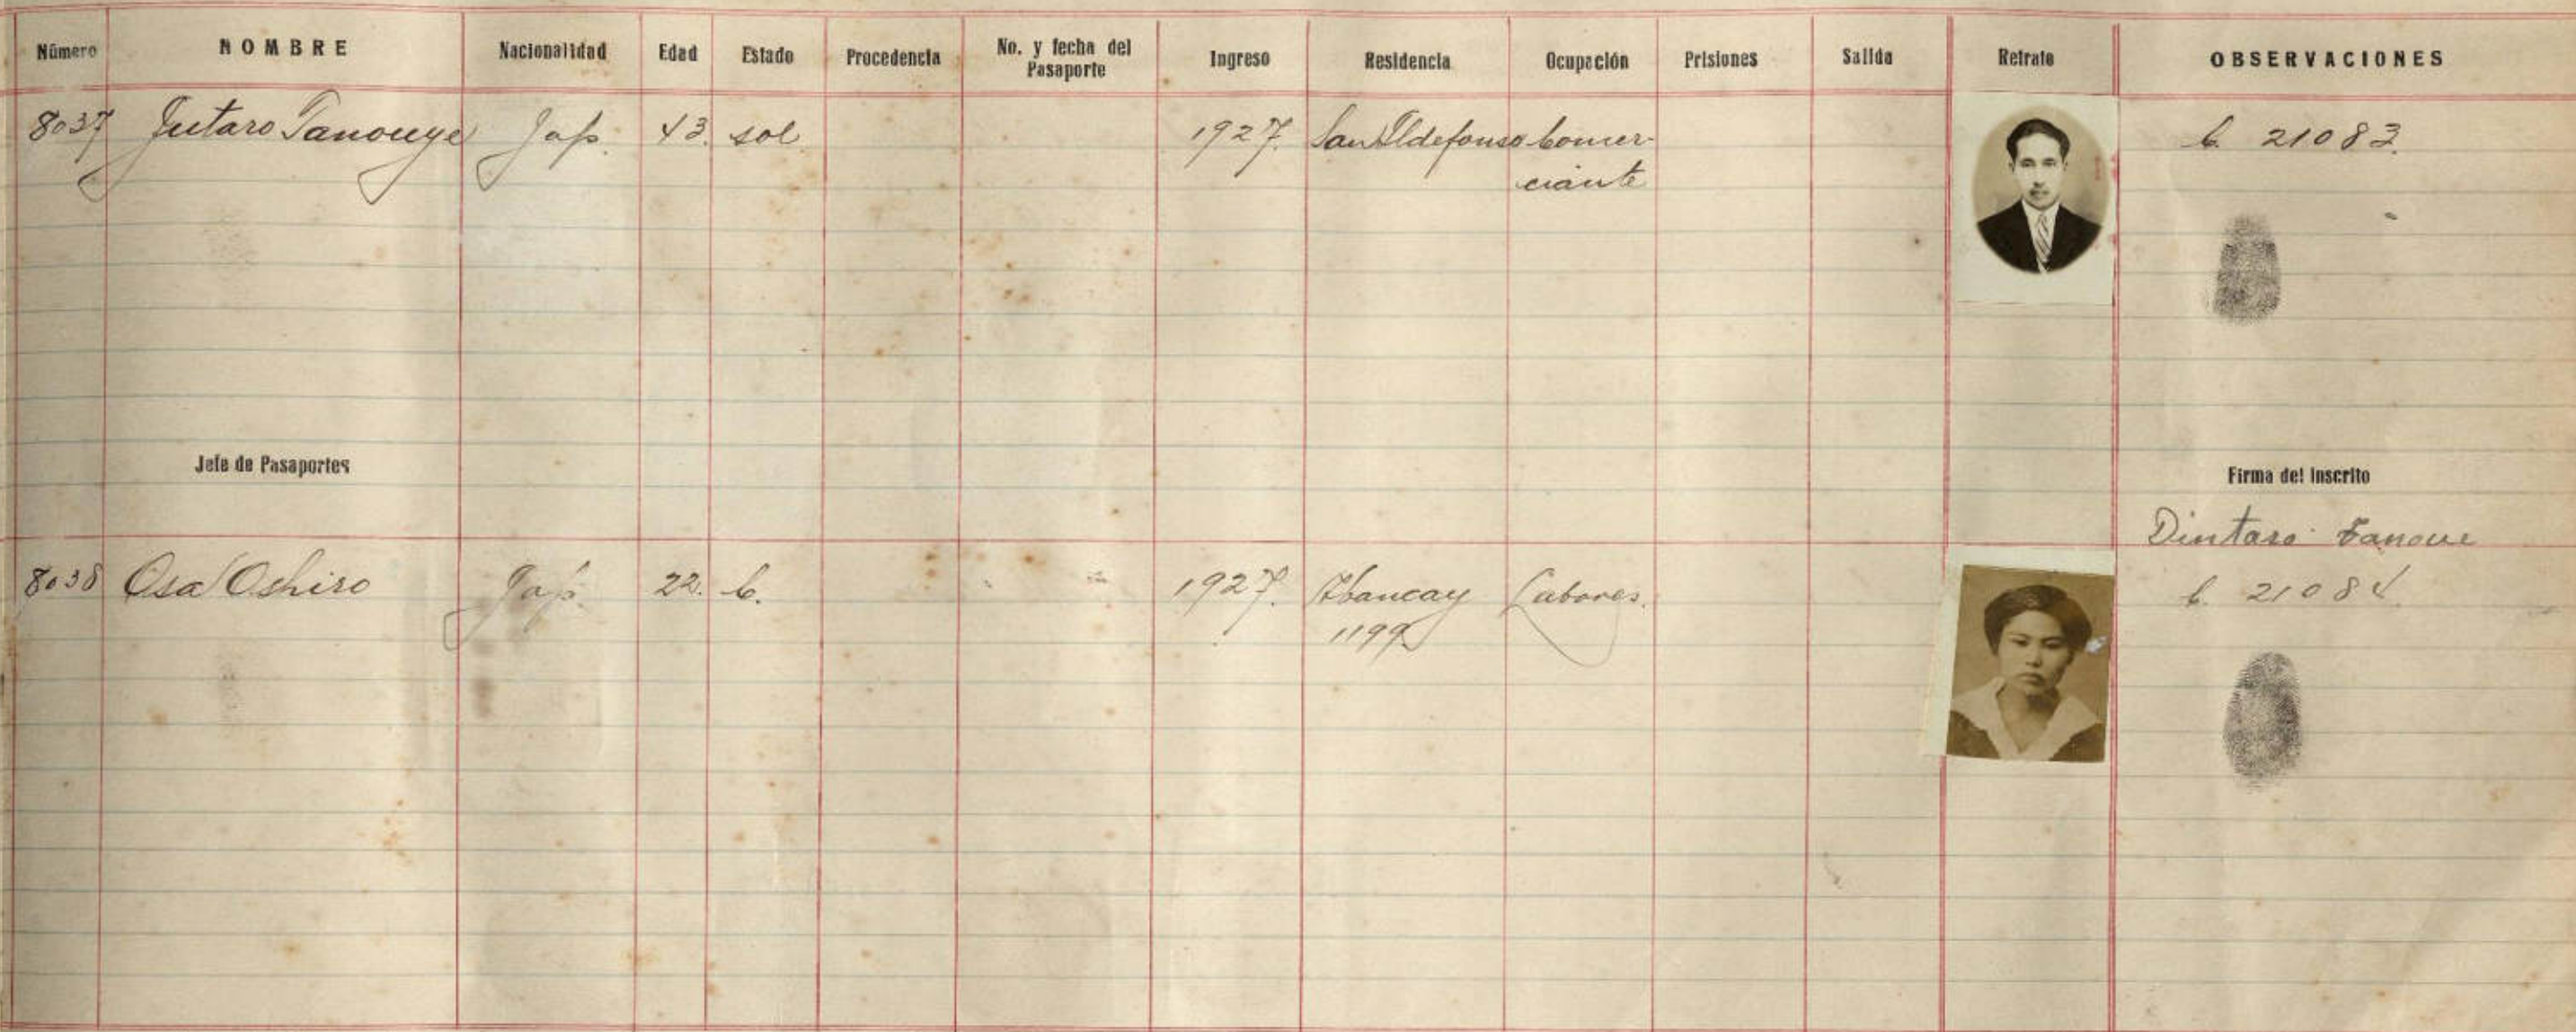 Número NOMBRE Nacionalidad Edad Estado Procedencia No. y fecha del Pasaporte Ingreso Residencia Ocupación Prisiones Salida Retrato OBSERVACIONES
8037 Jutaro Tanouye Jap. 43. sol. 1927. San Ildefonso Comer- C. 21083.
ciante
Jefe de Pasaportes Firma del Inscrito
Dintaro Tanoue
8038 Osa Oshiro Jap. 22. C. 1927. Abancay Labores. C. 21084.
1199